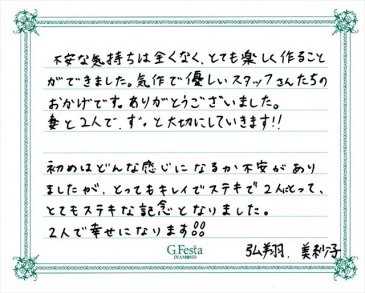 不安な気持ちは全くなく、とても楽しく作ること
ができました。気作で優しいスタッフさんたちの
おかげです。ありがとうございました。
妻と2人で、ずっと大切にしていきます!!
初めはどんな感じになるか不安があり
ましたが、とってもキレイでステキで2人にとって、
とてもステキな記念となりました。
2人で幸せになります!!
G.Festa
DIAMOND
弘翔、美紗子